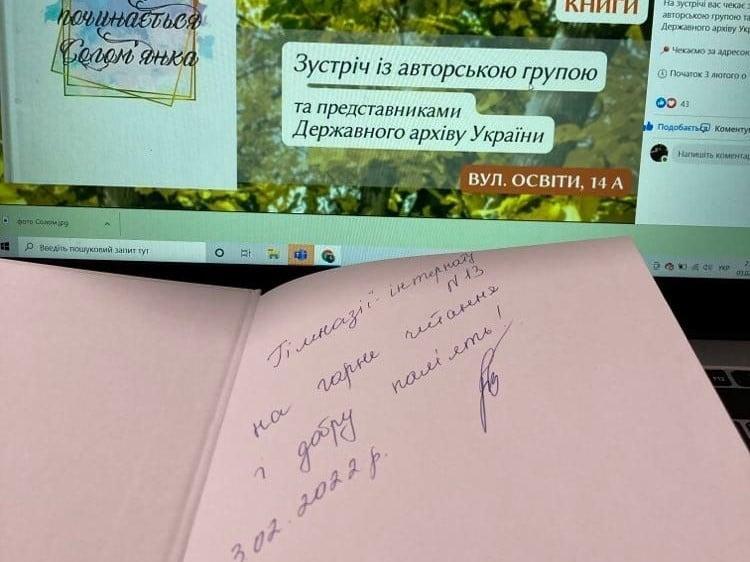 починається
Солом'янка
КНИГИ
Зустріч із авторською групою
та представниками
Державного архіву України
ВУЛ. ОСВІТИ, 14 А
На зустрічі вас чекає з
авторською групою та
Державного архіву Укра
Чекаємо за адресою
Початок 3 лютого о
43
Подобається
Коменту
Напишіть комента
фото Солом.jpg
Введіть пошуковий запит тут
УКР
F12
Гімназії-інтернату
N 13
на гарне читання
і добру пам'ять!
3.02.2022 р.